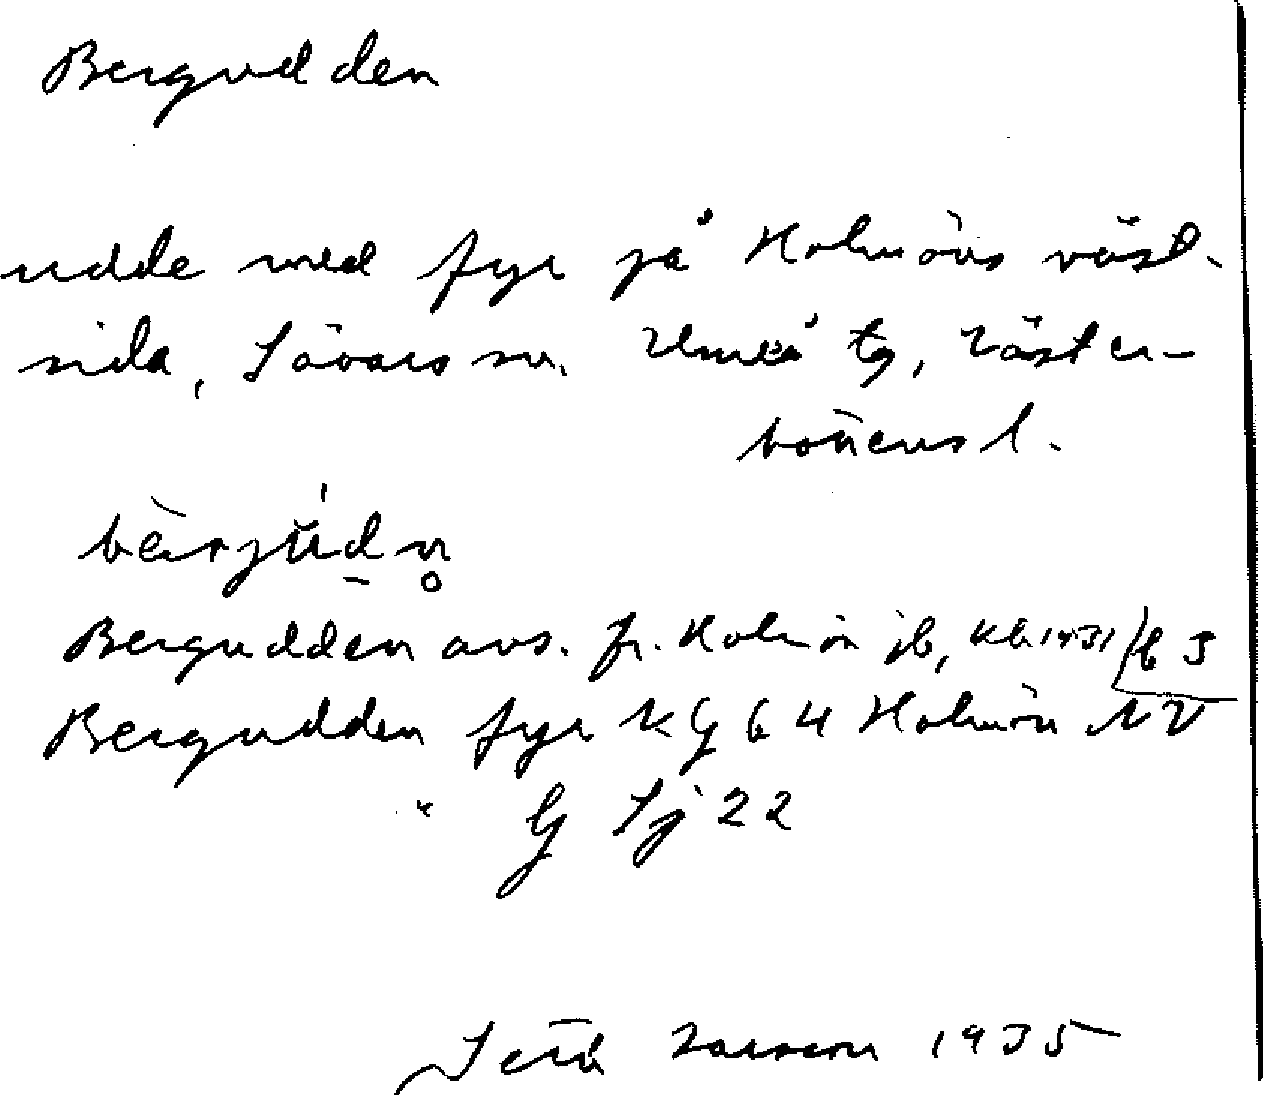 Bergudden
udde med fyr på Holmöns väst-
sida, Sävars sn. Umeå tg, Väster-
bottens l.
Bergudden avs. fr. Holmön jb,
Bergudden fyr KG 64 Holmön NV
" G Sj 22
Larsson 1935